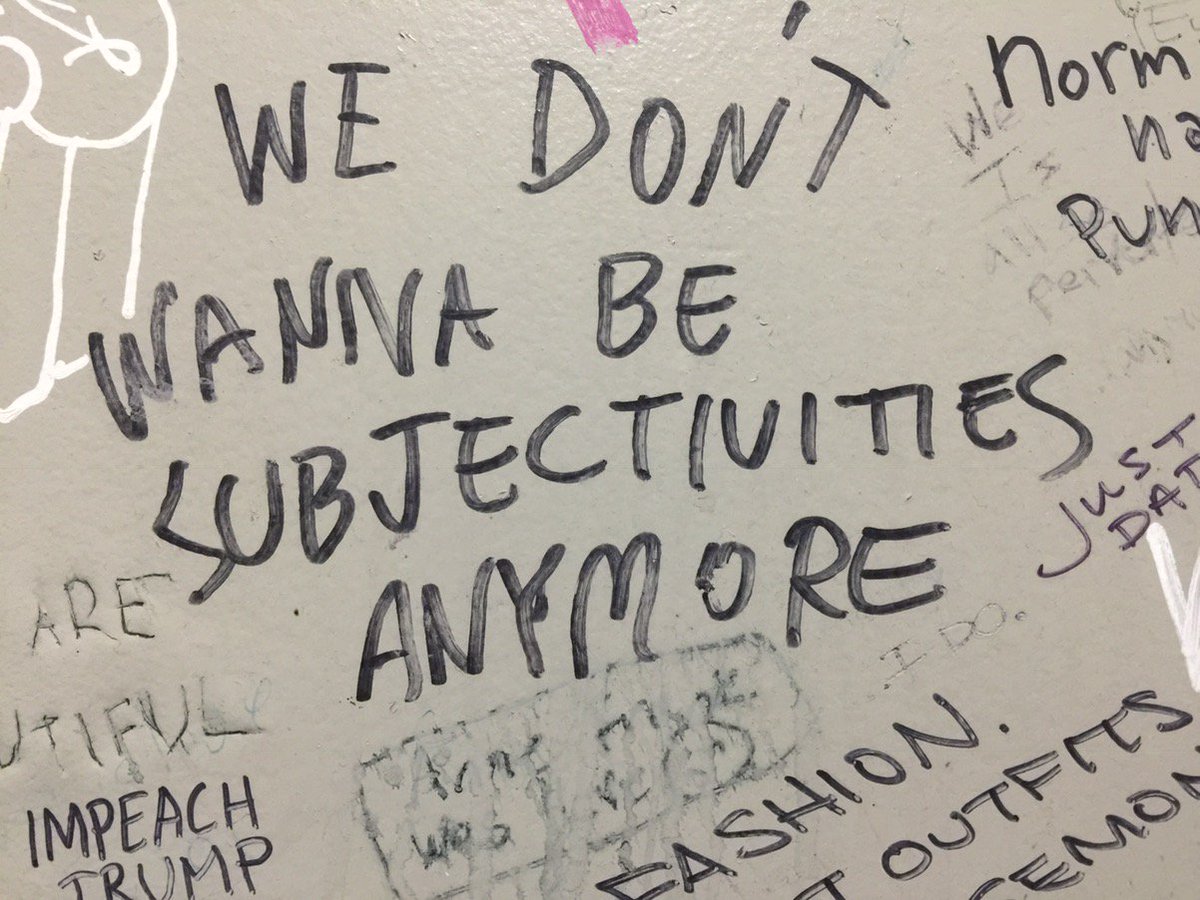 WE DON'T
WANNA BE
SUBJECTIVITIES
ANYMORE
norm
na
pun
We
Is
all
JUST
DAT
I DO.
ARE
UTIFUL
IMPEACH
TRUMP
FASHION.
OUTFITS